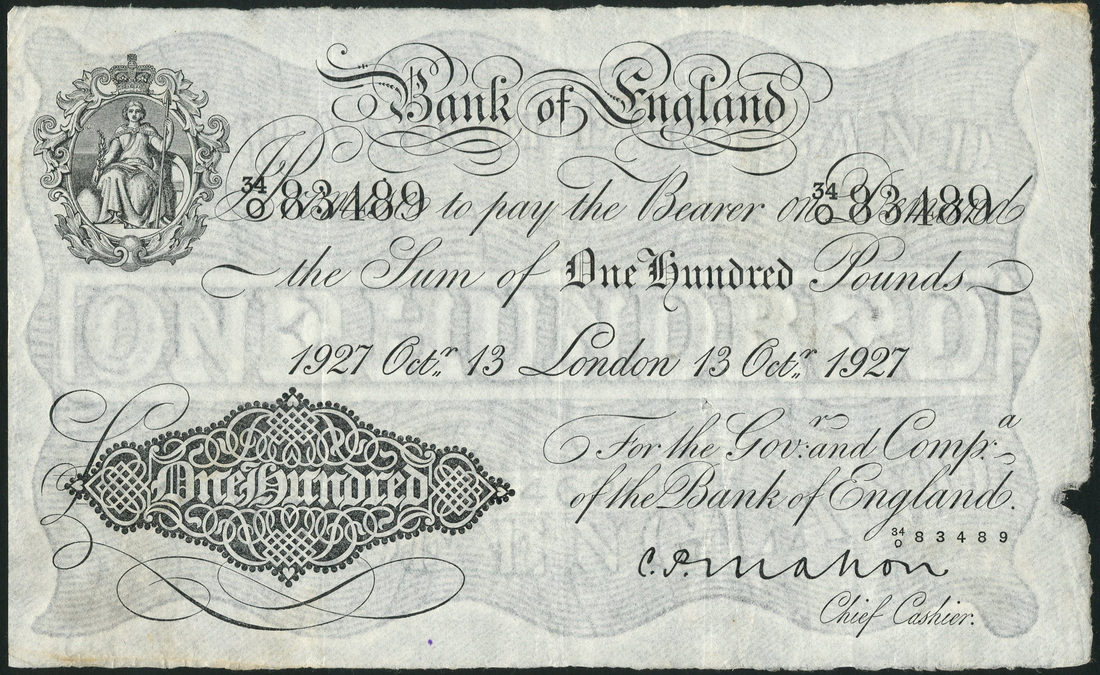 Bank of England
34/O 83489 34/O 83489
Promise to pay the Bearer on Demand
the Sum of One Hundred Pounds
1927 Octr. 13 London 13 Octr. 1927
For the Govr: and Compa:
of the Bank of England.
One Hundred
34/O 83489
C.P. Mahon
Chief Cashier.